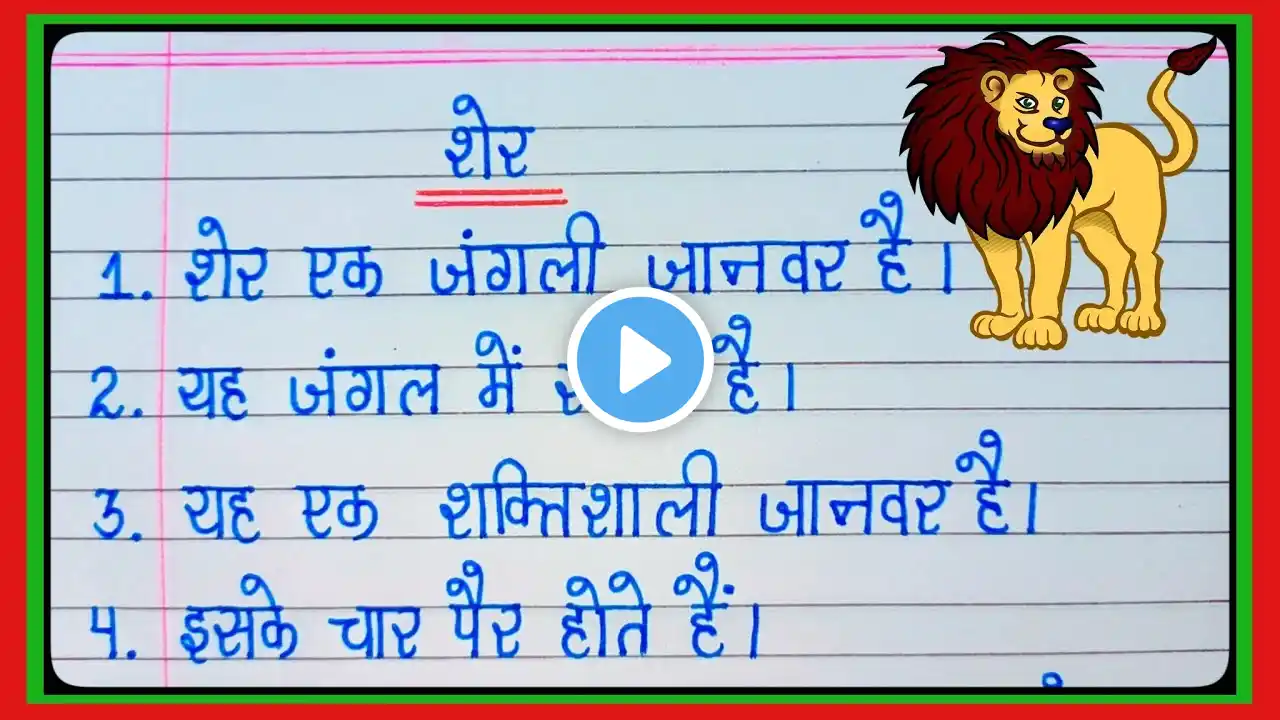 शेर
1. शेर एक जंगली जानवर है।
2. यह जंगल में है।
3. यह एक शक्तिशाली जानवर है।
4. इसके चार पैर होते हैं।